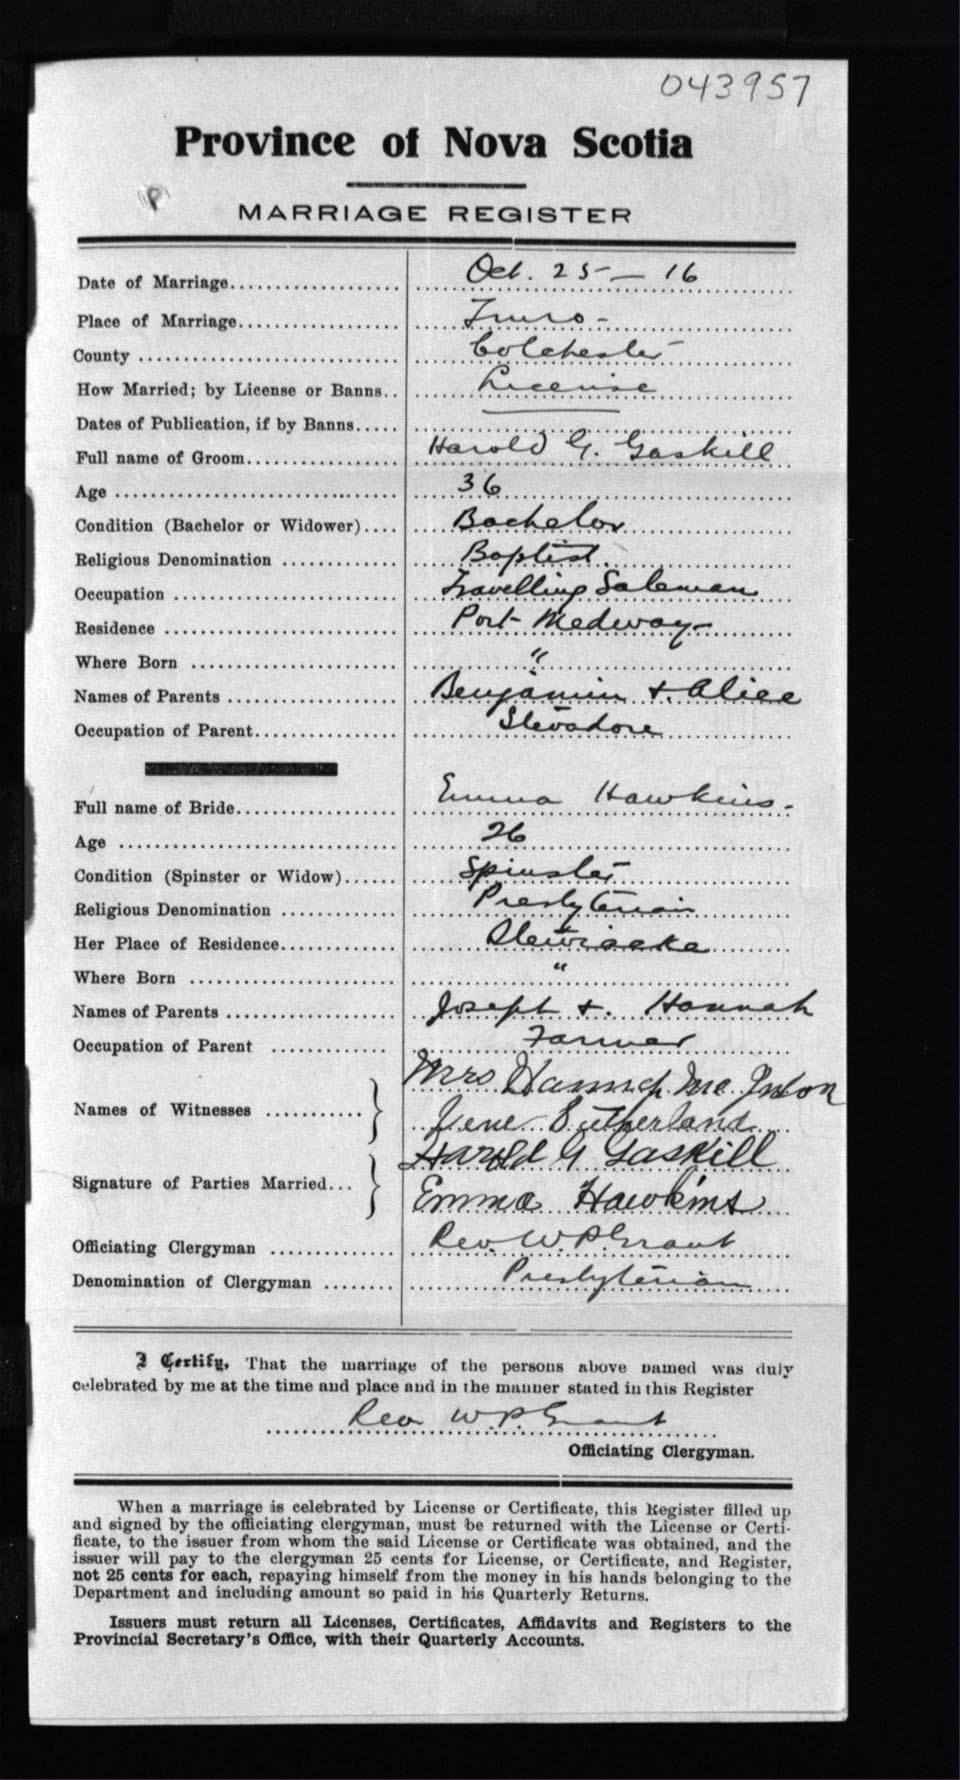 043957
Province of Nova Scotia
MARRIAGE REGISTER
Date of Marriage................... Oct. 25 - 16
Place of Marriage.................. Truro -
County ............................ Colchester
How Married; by License or Banns.. License
Dates of Publication, if by Banns.....
Full name of Groom................ Harold G. Gaskill
Age ............................... 36
Condition (Bachelor or Widower).... Bachelor
Religious Denomination ............. Baptist
Occupation ......................... Travelling Salesman
Residence .......................... Port Medway
Where Born ....................... "
Names of Parents ................... Benjamin + Alice
Occupation of Parent................ Stevadore
Full name of Bride.................. Emma Hawkins.
Age ................................ 26
Condition (Spinster or Widow)...... Spinster
Religious Denomination ............. Presbyterian
Her Place of Residence............. Stewiacke
Where Born ....................... "
Names of Parents ................... Joseph + Hannah
Occupation of Parent ............. Farmer
Mrs Hannah
Names of Witnesses ........... Sutherland
Harold G Gaskill
Signature of Parties Married...
Emma Hawkins
Officiating Clergyman .............. Rev. W. P. Grant
Denomination of Clergyman ........ Presbyterian
I Certify, That the marriage of the persons above named was duly
celebrated by me at the time and place and in the manner stated in this Register
Rev W. P. Grant
Officiating Clergyman.
When a marriage is celebrated by License or Certificate, this Register filled up
and signed by the officiating clergyman, must be returned with the License or Certi-
ficate, to the issuer from whom the said License or Certificate was obtained, and the
issuer will pay to the clergyman 25 cents for License, or Certificate, and Register,
not 25 cents for each, repaying himself from the money in his hands belonging to the
Department and including amount so paid in his Quarterly Returns.
Issuers must return all Licenses, Certificates, Affidavits and Registers to the
Provincial Secretary's Office, with their Quarterly Accounts.